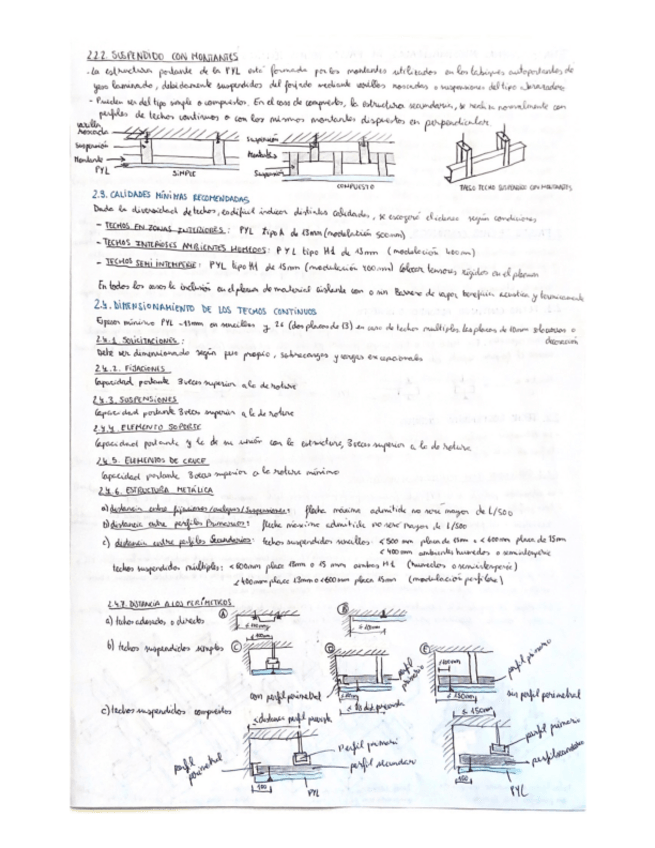 2.2.2. SUSPENDIDO CON MONTANTES
- La estructura portante de la PYL está formada por los montantes utilizados en los tabiques autoportantes de
yeso laminado, debidamente suspendidos del forjado mediante varillas roscadas o suspensiones del tipo
- Pueden ser del tipo simple o compuestos. En el caso de compuestos, la estructura secundaria, se realiza normalmente con
perfiles de techos continuos o con los mismos montantes dispuestos en perpendicular.
varilla roscada
suspensión
Montante
PYL
SIMPLE
Suspensión
Montantes
Suspensión
COMPUESTO
TECHO SUSPENDIDO CON MONTANTES
2.3. CALIDADES MÍNIMAS RECOMENDADAS
Dada la diversidad de techos, es difícil indicar distintas calidades, se escogerá el idóneo según condiciones
- TECHOS EN ZONAS INTERIORES: PYL tipo A de 13mm (modulación 500mm)
- TECHOS INTERIORES AMBIENTES HÚMEDOS: PYL tipo H1 de 13mm (modulación 400mm)
- TECHOS SEMI INTEMPERIE: PYL tipo H1 de 15mm (modulación 400mm) colocar tensores rígidos en el plenum
En todos los casos la inclusión en el plenum de material aislante con o sin Barrera de vapor beneficia acústica y térmicamente
2.4. DIMENSIONAMIENTO DE LOS TECHOS CONTINUOS
Espesor mínimo PYL -13mm en sencillos y 26 (dos placas de 13) en caso de techos múltiples las placas de 10mm o
decoración
2.4.1 SOLICITACIONES:
Debe ser dimensionado según peso propio, sobrecargas y cargas excepcionales
2.4.2. FIJACIONES
Capacidad portante 3 veces superior a la de rotura
2.4.3. SUSPENSIONES
Capacidad portante 3 veces superior a la de rotura
2.4.4 ELEMENTO SOPORTE
Capacidad portante y la de su unión con la estructura, 3 veces superior a la de rotura
2.4.5. ELEMENTOS DE CRUCE
Capacidad portante 3 veces superior a la rotura mínimo
2.4.6. ESTRUCTURA METÁLICA
a) distancia entre fijaciones/anclajes/suspensiones: flecha máxima admitida no será mayor de L/500
b) distancia entre perfiles Primarios: flecha máxima admitida no será mayor de L/500
c) distancia entre perfiles Secundarios: techos suspendidos sencillos: < 500 mm placa de 13mm o < 600mm placa de 15mm
< 400 mm ambientes húmedos o semintemperie
techos suspendidos múltiples: < 600mm placa 13mm o 15 mm ambas H1 (húmedos o semintemperie)
< 400mm placa 13mm o < 600mm placa 15mm
2.4.7. DISTANCIA A LOS PERÍMETROS
a) techos adosados o directos
A
B
b) techos suspendidos simples
C
D
E
con perfil perimetral
perfil primario
perfil primario
sin perfil perimetral
c) techos suspendidos compuestos
≤ 150mm
perfil perimetral
Perfil primario
perfil secundario
100
PYL
perfil primario
perfil secundario
100
PYL